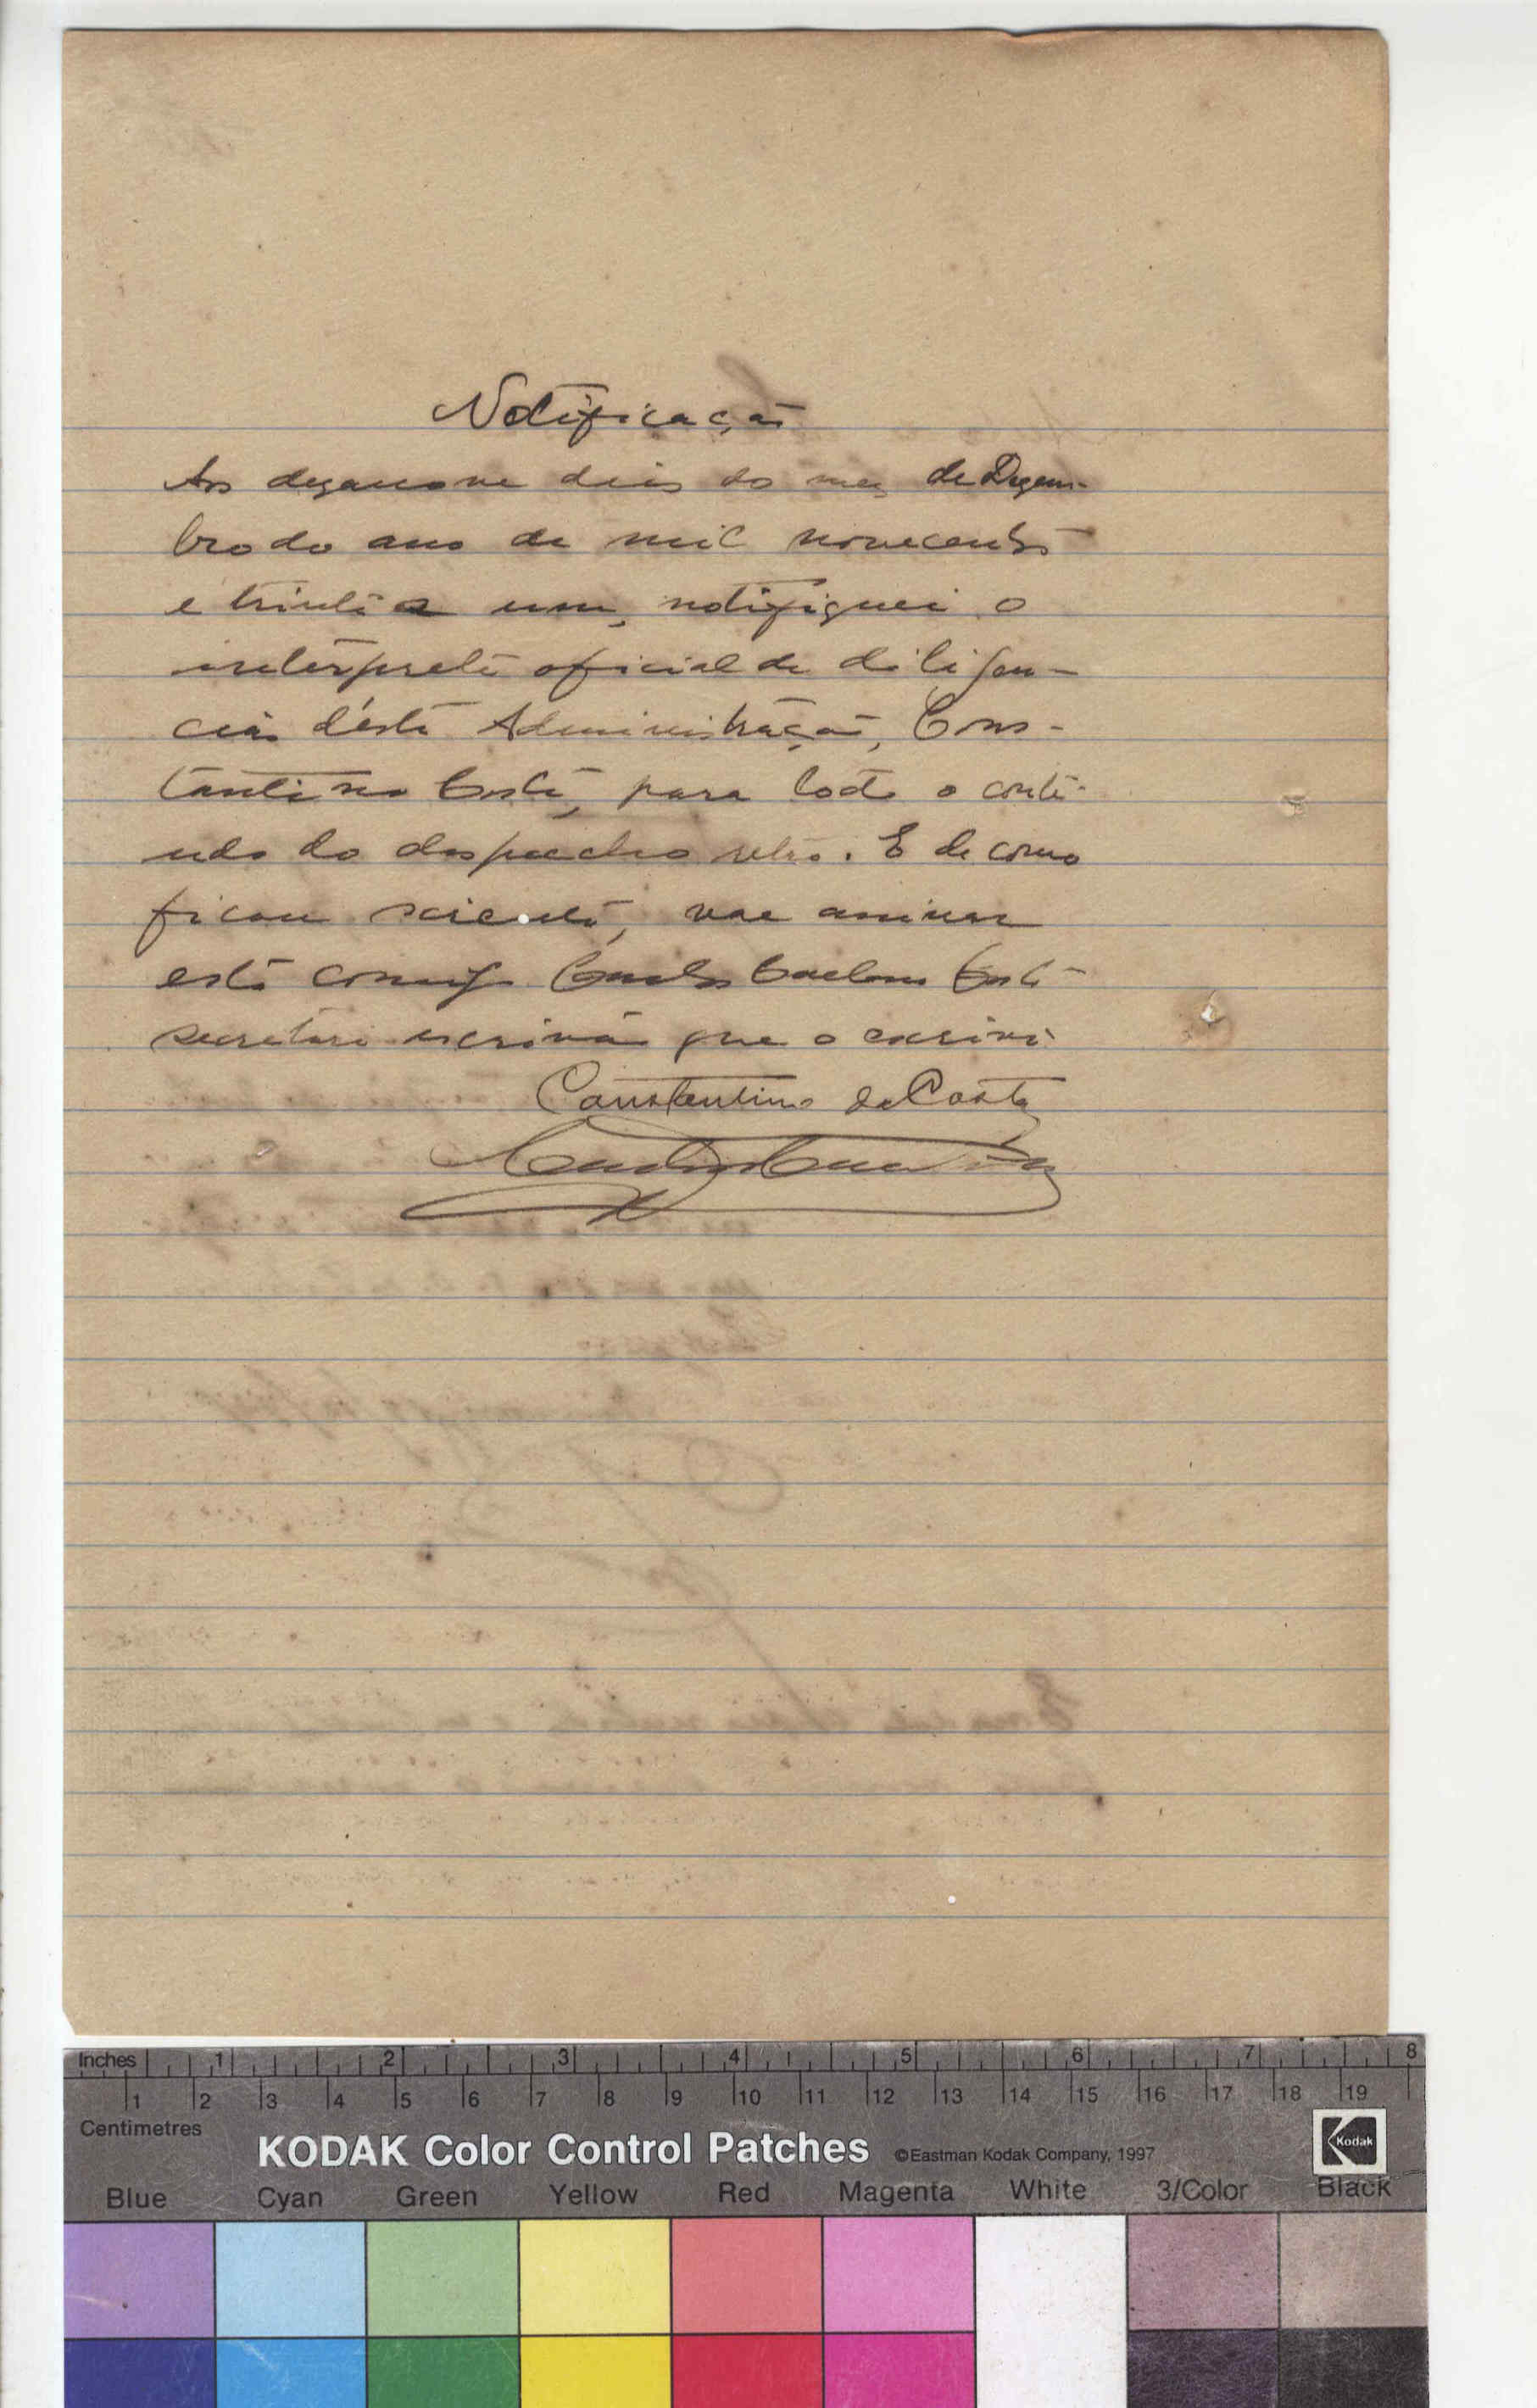 Notificação
Aos dezanove dias do mez de Dezem-
bro do ano de mil novecentos
e trinta e um, notifiquei o
interprete oficial de diligen-
cias d'ésta Administração, Cons-
tantino Costa, para todo o conte-
udo do despacho retro. E de como
ficou sciente, vae assinar
esta comigo Caetano Costa
secretario escrivão que o escrivi
Constantino da Costa
Inches 1 2 3 4 5 6 7 8
1 2 3 4 5 6 7 8 9 10 11 12 13 14 15 16 17 18 19
Centimetres
KODAK Color Control Patches ©Eastman Kodak Company, 1997
Kodak
Blue Cyan Green Yellow Red Magenta White 3/Color Black